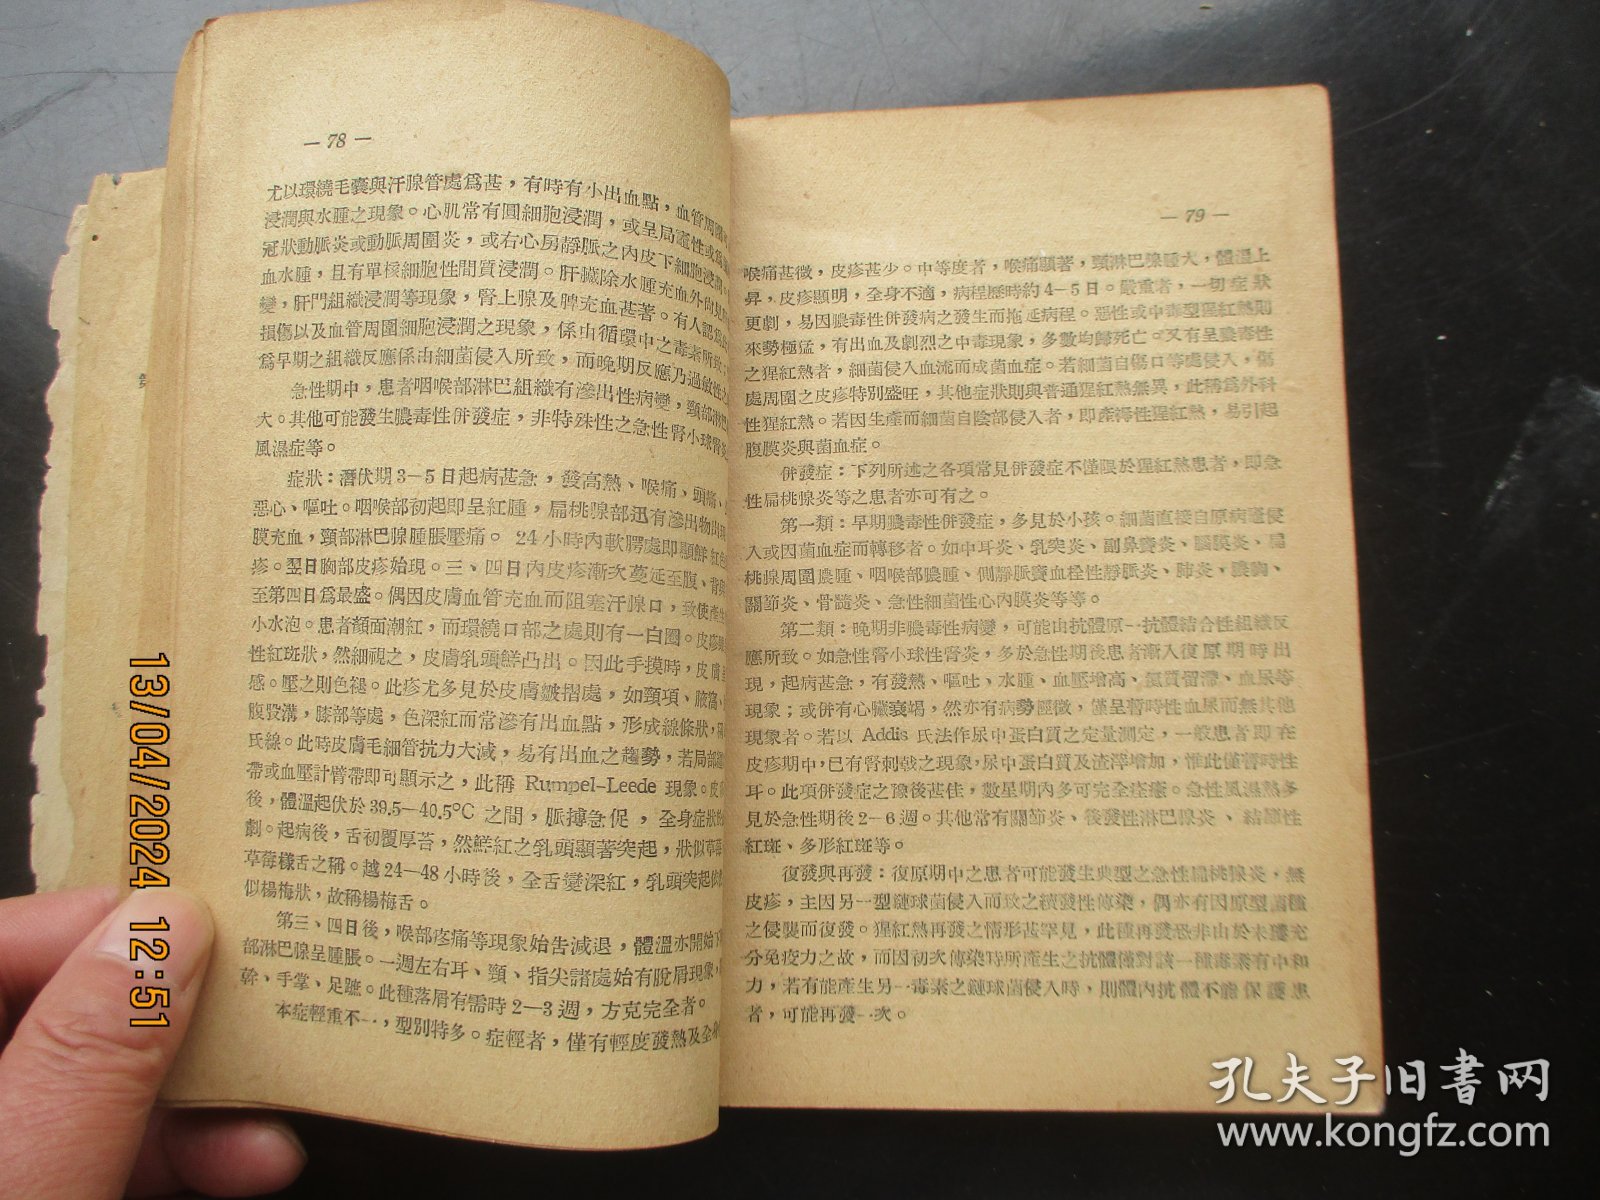 — 78 —
尤以環繞毛囊與汗腺管處爲甚，有時有小出血點，血管周圍
浸潤與水腫之現象。心肌常有圓細胞浸潤，或呈局竈性或
冠狀動脈炎或動脈周圍炎，或右心房靜脈之內皮下細胞浸潤
血水腫，且有單核細胞性間質浸潤。肝臟除水腫充血外尚見
變，肝門組織浸潤等現象，腎上腺及脾充血甚著。有人認爲
損傷以及血管周圍細胞浸潤之現象，係由循環中之毒素所致
爲早期之組織反應係由細菌侵入所致，而晚期反應乃過敏性
急性期中，患者咽喉部淋巴組織有滲出性病變，頸部淋巴
大。其他可能發生膿毒性併發症，非特殊性之急性腎小球腎
風濕症等。
症狀：潛伏期3—5日起病甚急，發高熱、喉痛、頭痛、
惡心、嘔吐。咽喉部初起即呈紅腫，扁桃腺部迅有滲出物出現
膜充血，頸部淋巴腺腫脹壓痛。24小時內軟腭處即顯鮮紅色
疹。翌日胸部皮疹始現。三、四日內皮疹漸次蔓延至腹、背與
至第四日爲最盛。偶因皮膚血管充血而阻塞汗腺口，致使產生
小水泡。患者顏面潮紅，而環繞口部之處則有一白圈。皮疹
性紅斑狀，然細視之，皮膚乳頭鮮凸出。因此手摸時，皮膚
感。壓之則色褪。此疹尤多見於皮膚皺摺處，如頸項、腋窩、
腹股溝，膝部等處，色深紅而常滲有出血點，形成線條狀，
氏線。此時皮膚毛細管抗力大減，易有出血之趨勢，若局部
帶或血壓計臂帶即可顯示之，此稱 Rumpel-Leede 現象。皮
後，體溫起伏於39.5—40.5°C 之間，脈搏急促，全身症狀
劇。起病後，舌初覆厚苔，然鮮紅之乳頭顯著突起，狀似草莓
草莓樣舌之稱。越24—48小時後，全舌變深紅，乳頭突起
似楊梅狀，故稱楊梅舌。
第三、四日後，喉部疼痛等現象始告減退，體溫亦開始下
部淋巴腺呈腫脹。一週左右耳、頸、指尖諸處始有脫屑現象，
幹、手掌、足蹠。此種落屑有需時2—3週，方克完全者。
本症輕重不一，型別特多。症輕者，僅有輕度發熱及全身
— 79 —
喉痛甚微，皮疹甚少。中等度者，喉痛顯著，頸淋巴腺腫大，體溫上
昇，皮疹顯明，全身不適，病程歷時約4—5日。嚴重者，一切症狀
更劇，易因膿毒性併發病之發生而拖延病程。惡性或中毒型猩紅熱則
來勢極猛，有出血及劇烈之中毒現象，多數均歸死亡。又有呈膿毒性
之猩紅熱者，細菌侵入血流而成菌血症。若細菌自傷口等處侵入，傷
處周圍之皮疹特別盛旺，其他症狀則與普通猩紅熱無異，此稱爲外科
性猩紅熱。若因生產而細菌自陰部侵入者，即產褥性猩紅熱，易引起
腹膜炎與菌血症。
併發症：下列所述之各項常見併發症不僅限於猩紅熱患者，即急
性扁桃腺炎等之患者亦可有之。
第一類：早期膿毒性併發症，多見於小孩。細菌直接自原病竈侵
入或因菌血症而轉移者。如中耳炎、乳突炎、副鼻竇炎、腦膜炎、扁
桃腺周圍膿腫、咽喉部膿腫、側靜脈竇血栓性靜脈炎、肺炎，膿胸、
關節炎、骨髓炎、急性細菌性心內膜炎等等。
第二類：晚期非膿毒性病變，可能由抗體原—抗體結合性組織反
應所致。如急性腎小球性腎炎，多於急性期後患者漸入復原期時出
現，起病甚急，有發熱、嘔吐、水腫、血壓增高、氮質留滯、血尿等
現象；或併有心臟衰竭，然亦有病勢輕微，僅呈暫時性血尿而無其他
現象者。若以 Addis 氏法作尿中蛋白質之定量測定，一般患者即在
皮疹期中，已有腎刺戟之現象，尿中蛋白質及渣滓增加，惟此僅暫時性
耳。此項併發症之豫後甚佳，數星期內多可完全痊癒。急性風濕熱多
見於急性期後2—6週。其他常有關節炎、後發性淋巴腺炎、結節性
紅斑、多形紅斑等。
復發與再發：復原期中之患者可能發生典型之急性扁桃腺炎，無
皮疹，主因另一型鏈球菌侵入而致之續發性傳染，偶亦有因原型菌種
之侵襲而復發。猩紅熱再發之情形甚罕見，此種再發恐非由於未獲充
分免疫力之故，而因初次傳染時所產生之抗體僅對該一種毒素有中和
力，若有能產生另一毒素之鏈球菌侵入時，則體內抗體不能保護患
者，可能再發一次。
13/04/2024 12:51
孔夫子旧書网
www.kongfz.com